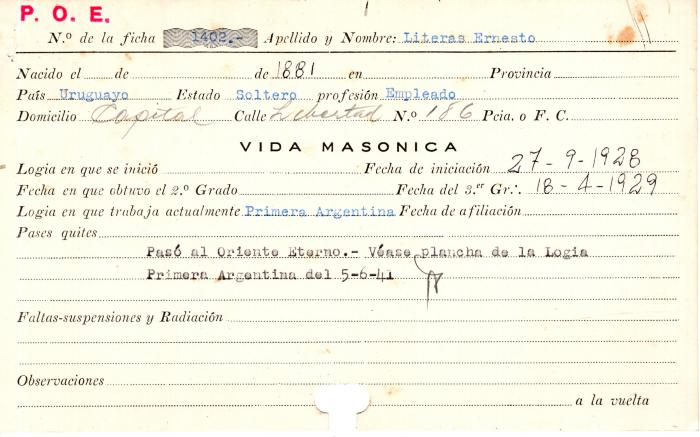 P. O. E.
N.º de la ficha 1402.- Apellido y Nombre: Literas Ernesto
Nacido el de de 1881 en Provincia
País Uruguayo Estado Soltero profesión Empleado
Domicilio Capital Calle Libertad N.º 186 Pcia. o F. C.
VIDA MASONICA
Logia en que se inició Fecha de iniciación 27-9-1928
Fecha en que obtuvo el 2.º Grado Fecha del 3.er Gr∴ 18-4-1929
Logia en que trabaja actualmente Primera Argentina Fecha de afiliación
Pases quites
Pasó al Oriente Eterno.- Véase plancha de la Logia
Primera Argentina del 5-6-41
Faltas-suspensiones y Radiación
Observaciones
a la vuelta